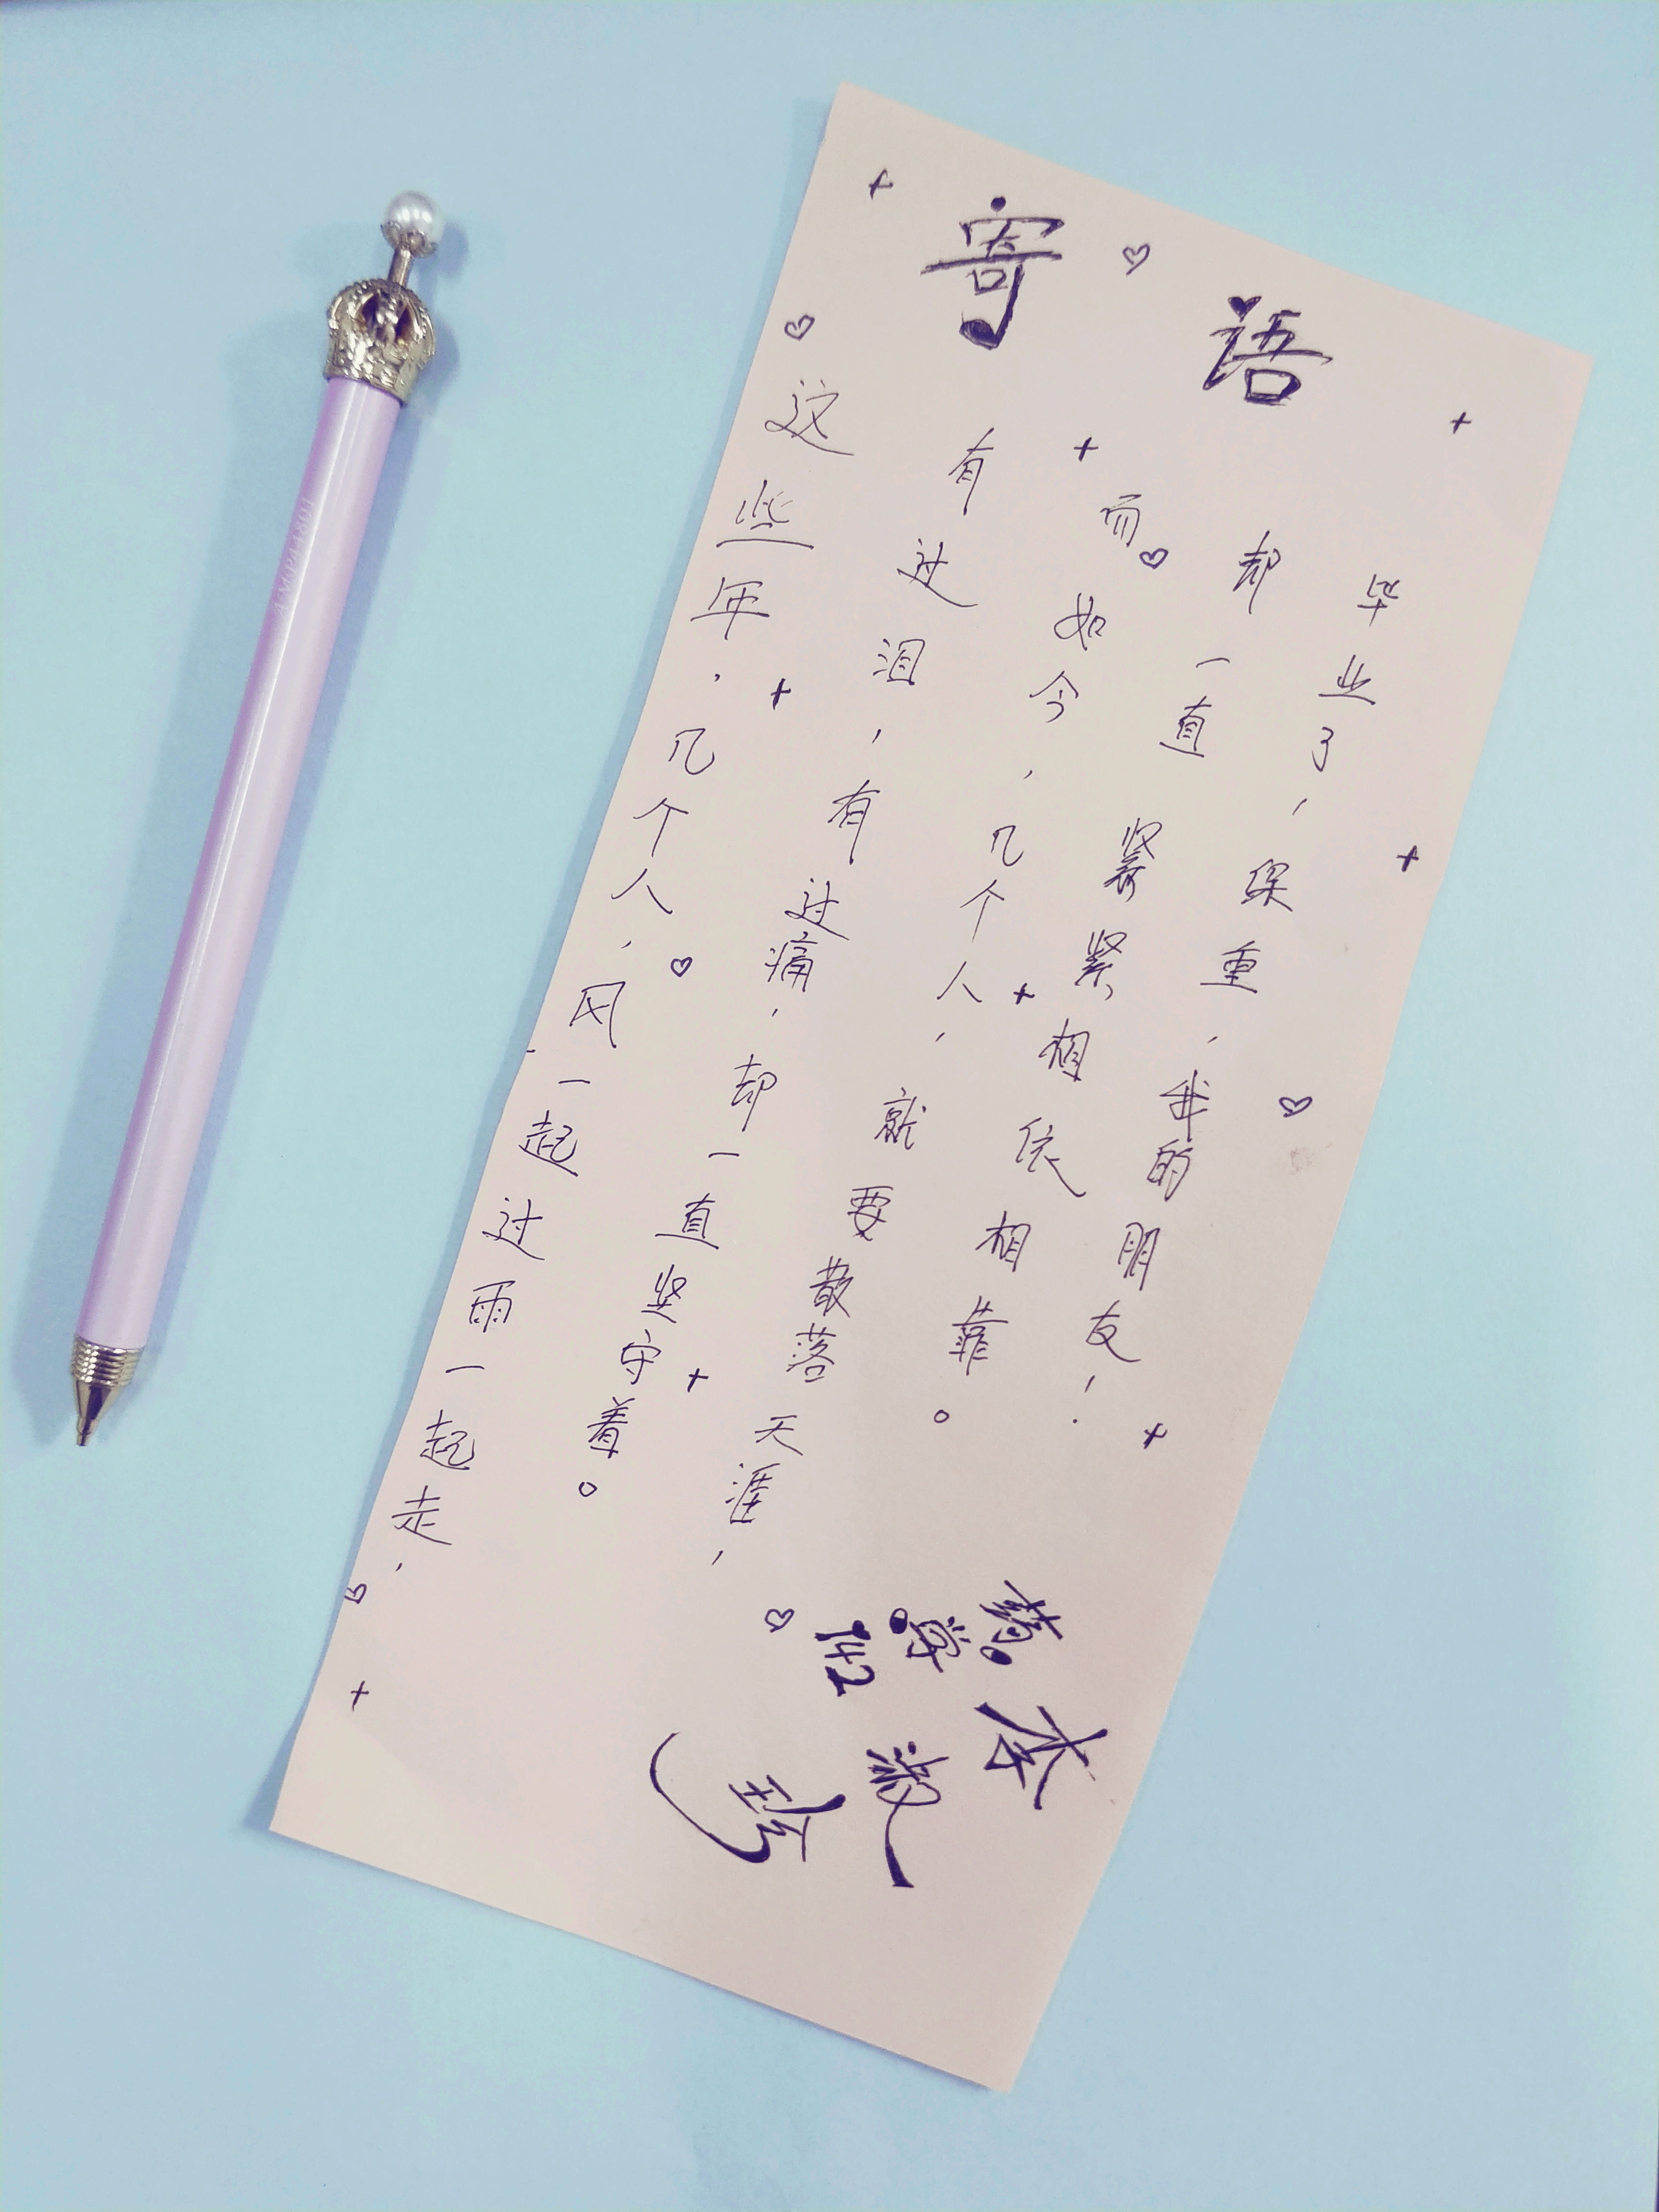 寄语
这些年,几个人,风一起过雨一起走,
有过泪,有过痛,却一直坚守着。
而如今,几个人,就要散落天涯,
却一直紧紧相依相靠。
毕业了,保重,我的朋友!
142
李淑珍